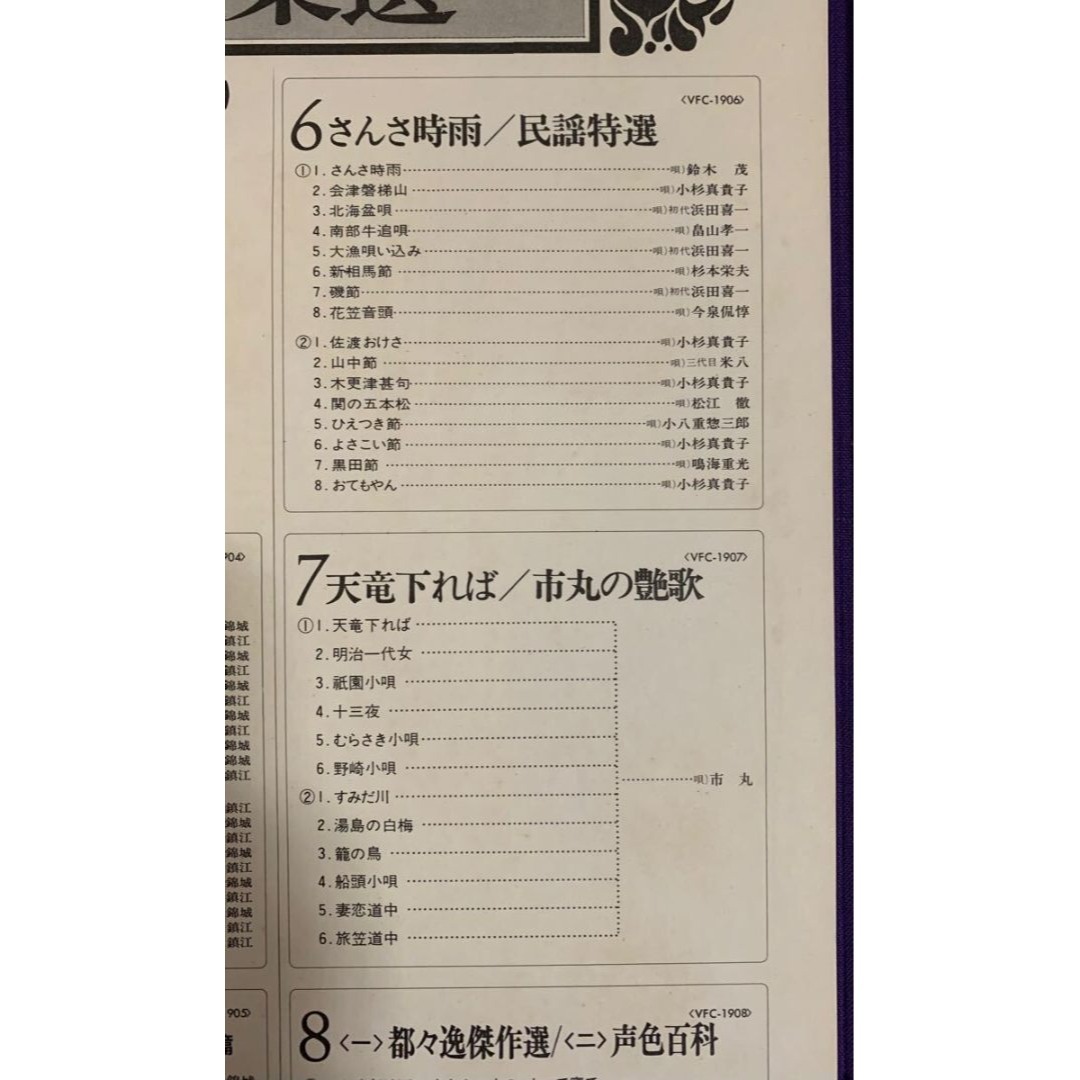 〈VFC-1906〉
6 さんさ時雨／民謡特選
①1.さんさ時雨 唄)鈴木 茂
2.会津磐梯山 唄)小杉真貴子
3.北海盆唄 唄)初代浜田喜一
4.南部牛追唄 唄)畠山孝一
5.大漁唄い込み 唄)初代浜田喜一
6.新相馬節 唄)杉本栄夫
7.磯節 唄)初代浜田喜一
8.花笠音頭 唄)今泉侃惇
②1.佐渡おけさ 唄)小杉真貴子
2.山中節 唄)三代目米八
3.木更津甚句 唄)小杉真貴子
4.関の五本松 唄)松江 徹
5.ひえつき節 唄)小八重惣三郎
6.よさこい節 唄)小杉真貴子
7.黒田節 唄)鳴海重光
8.おてもやん 唄)小杉真貴子
〈VFC-1907〉
7 天竜下れば／市丸の艶歌
①1.天竜下れば
2.明治一代女
3.祇園小唄
4.十三夜
5.むらさき小唄
6.野崎小唄
唄)市 丸
②1.すみだ川
2.湯島の白梅
3.籠の鳥
4.船頭小唄
5.妻恋道中
6.旅笠道中
904〉
錦城
鎮江
錦城
鎮江
錦城
鎮江
錦城
鎮江
錦城
錦城
鎮江
鎮江
錦城
鎮江
錦城
鎮江
錦城
鎮江
錦城
鎮江
鎮江
905〉
〈VFC-1908〉
8 〈一〉都々逸傑作選/〈二〉声色百科